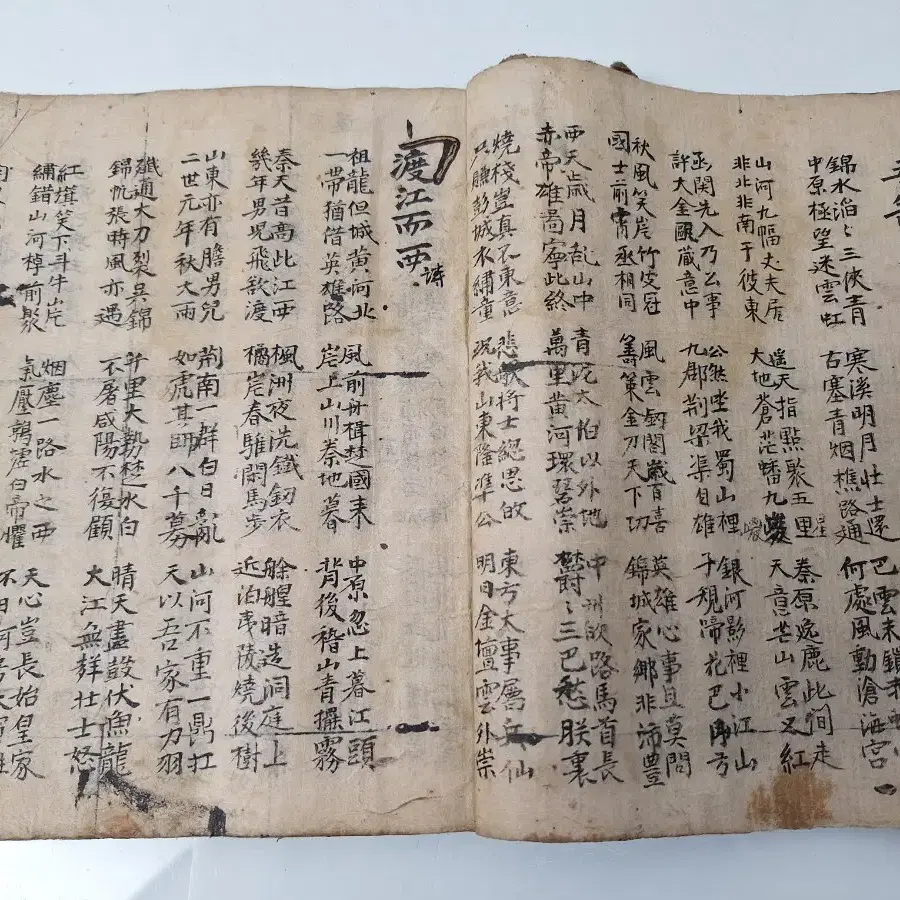 錦水滔ミ三俠青
中原極望迷雲虹
寒溪明月壮士還
古塞青烟樵路通
巴雲未鎖
何處風動滄海宮
山河九幅丈夫居
非非非南于彼東
遙天指點聚五里
大地蒼茫蟠九嵏
秦原逸鹿此间走
天意芒山雲又紅
函関先入乃公事
許大金甌蔵意中
公然坐我蜀山裡
九郡荊梁渠自雄
銀河影裡小江山
子規啼花巴月方
秋風笑岸竹皮冠
國士前宵丞相同
風雲劒閣歳喜
籌策金刀天下功
英雄心事且莫問
錦城家鄉非沛豊
西天歲月乱山中
赤帝雄啚寧此終
青泥太伯以外地
萬里黄河環碧崇
中州欲路馬首長
欝ミ三巴愁朕裏
燒棧豈真不東意
只聽彭城衣繡童
悲歌将士緫思故
況我山東隆準公
東方大事屬兵仙
明日金壇雲外崇
渡江而西 詩
祖龍但城黄河北
一帶猶借英雄路
風前舟楫楚國来
岸上山川秦地暮
中原忽上暮江頭
背後稽山青擁霧
秦天昔高此江西
幾年男児飛欲渡
楓洲夜洗鐵釼衣
橘岸春騅闌馬步
餘艎暗造洞庭上
近泊夷陵燒後樹
山東亦有膽男兒
二世元年秋大雨
荊南一群白日亂
如虎其師八千募
山河不重一鼎扛
天以吾家有力羽
殲通大刀裂吳錦
錦帆張時風亦遇
千里大勢楚水白
不屠咸陽不復顧
晴天盡鼓伏魚龍
大江無群壮士怒
紅旗笑下斗牛片
繡錯山河棹前聚
烟塵一路水之西
氣壓鶉墟白帝懼
天心豈長始皇家